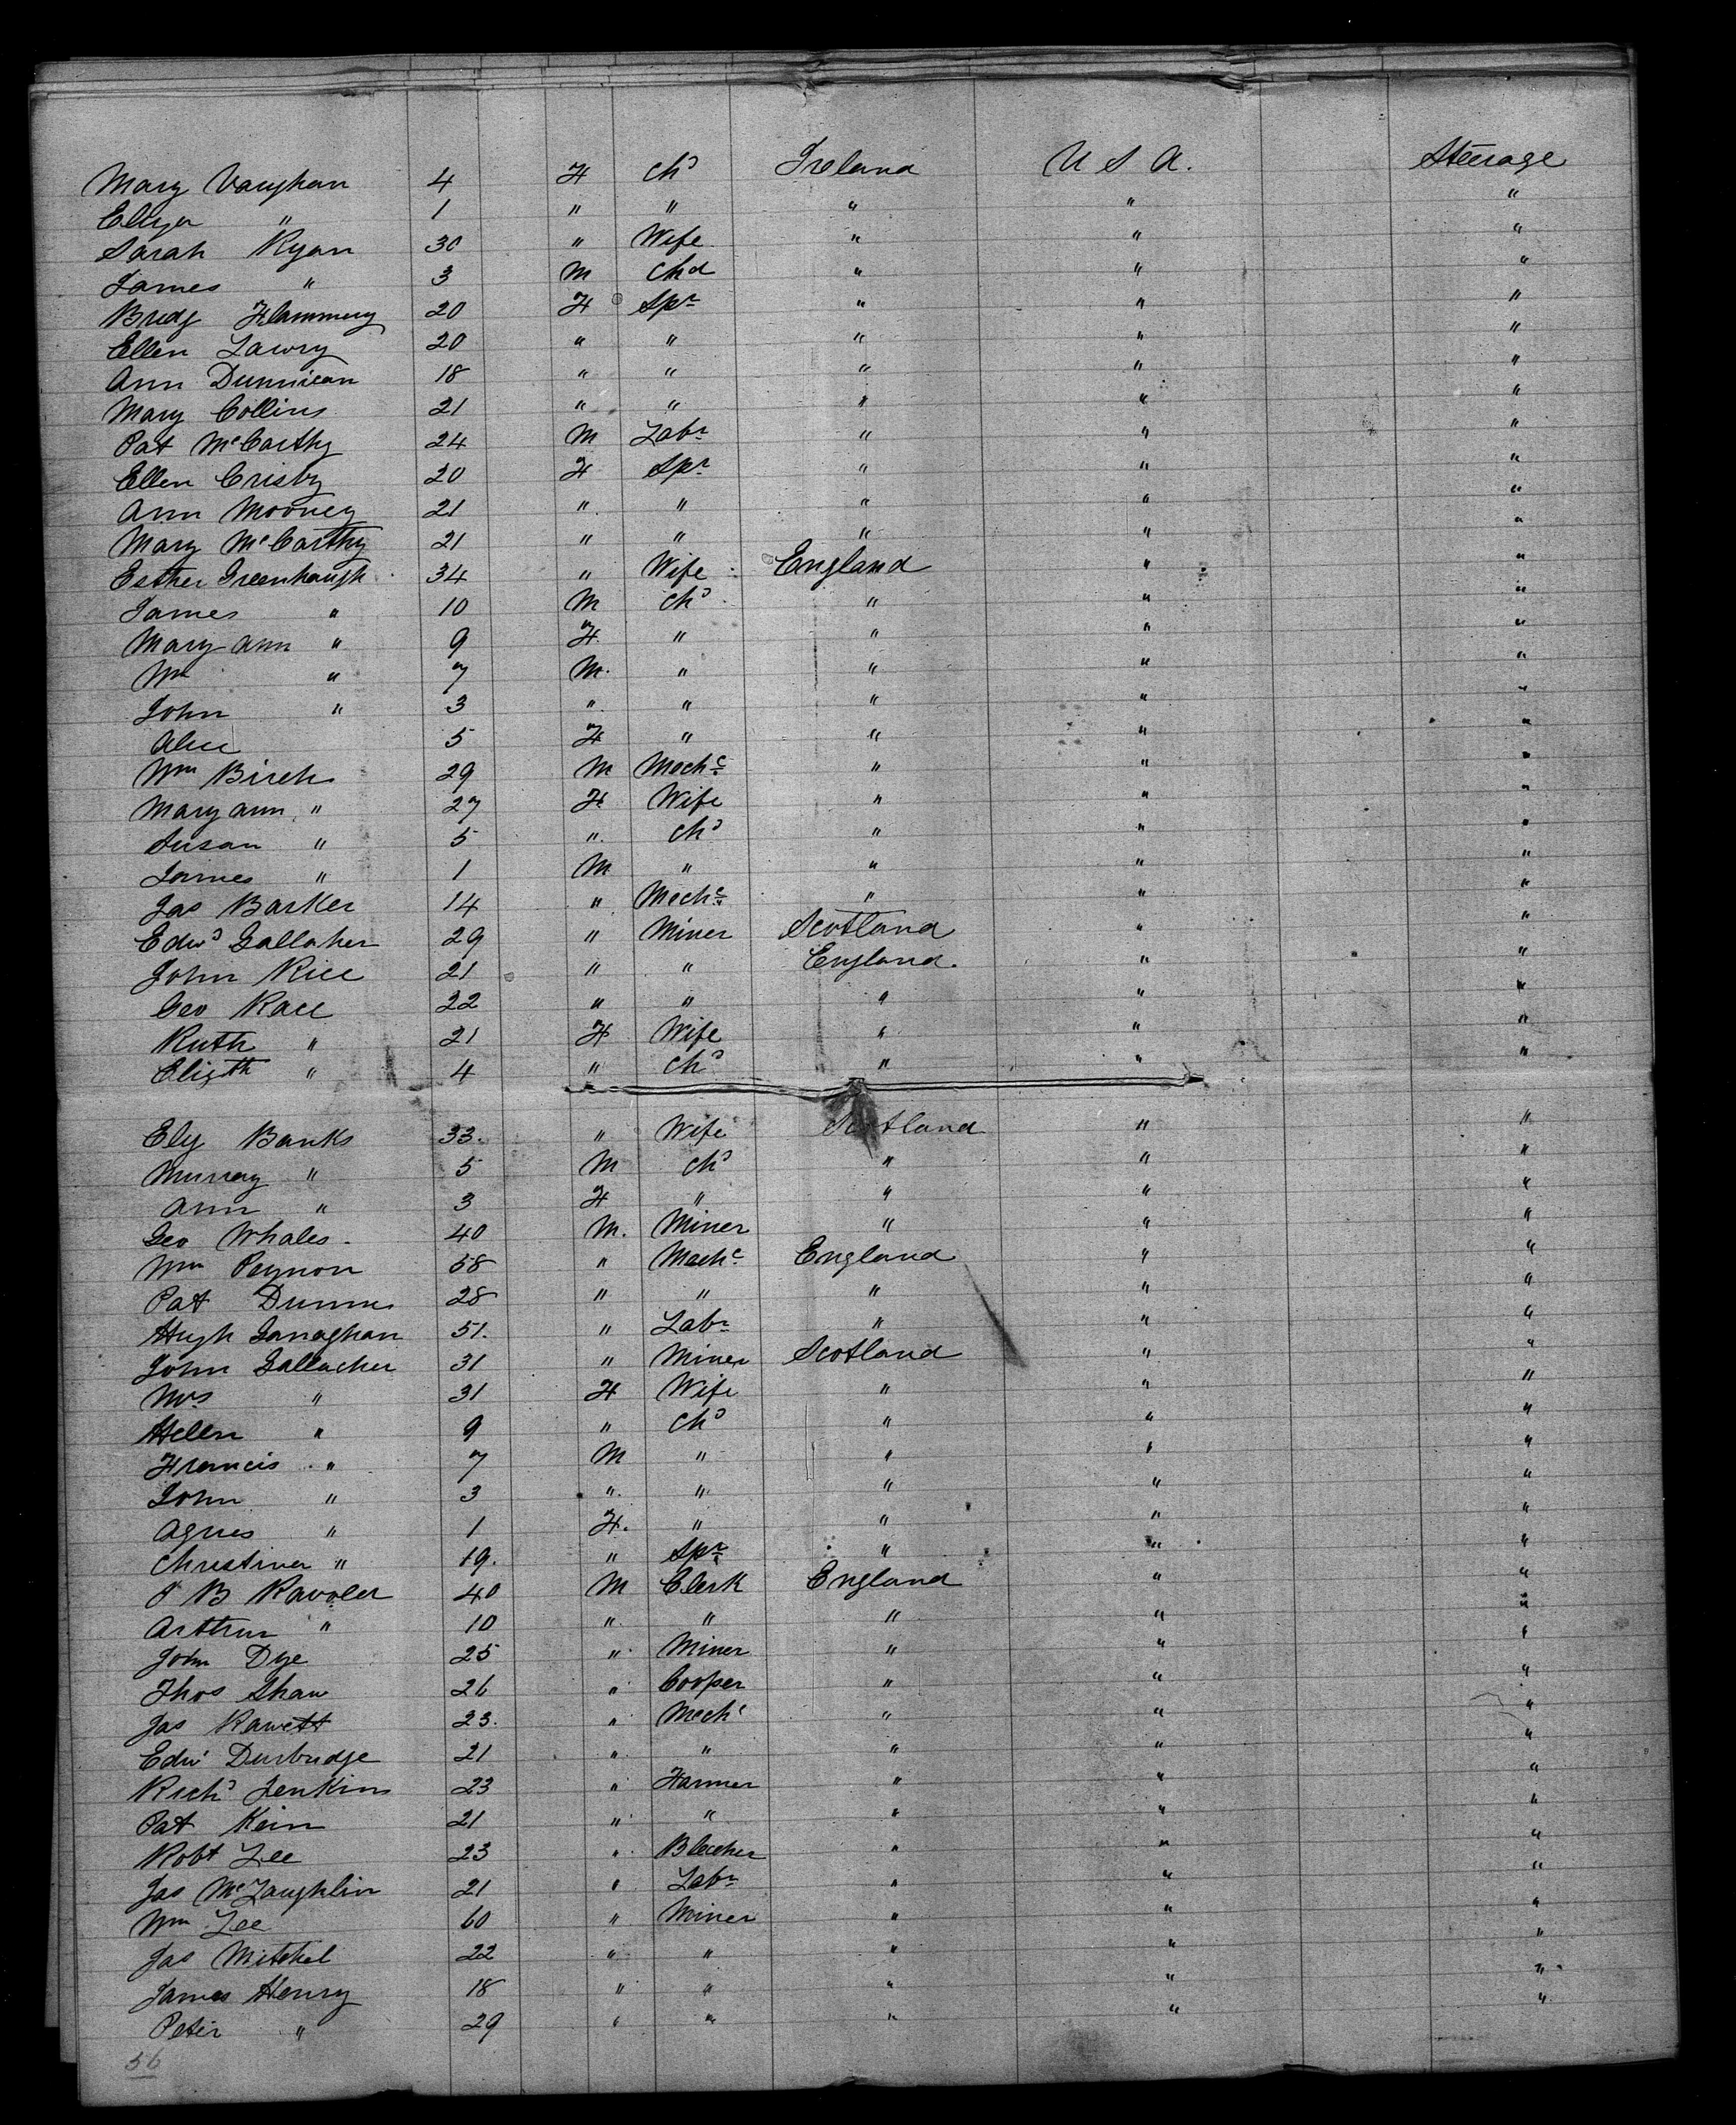 Mary Vaughan 4 F Chd Ireland U S A. Steerage
Eliza " 1 " " " " "
Sarah Ryan 30 " Wife " " "
James " 3 M Chd " " "
Bridg Flannery 20 F Spr " " "
Ellen Lawry 20 " " " " "
Ann Dunnican 18 " " " " "
Mary Collins 21 " " " " "
Pat McCarthy 24 M Labr " " "
Ellen Crisby 20 F Spr " " "
Ann Mooney 21 " " " " "
Mary McCarthy 21 " " " " "
Esther Greenhaugh 34 " Wife England " "
James " 10 M Chd " " "
Mary Ann " 9 F " " " "
Wm " 7 M. " " " "
John " 3 " " " " "
Alice 5 F " " " "
Wm Birch 29 M Mechc " " "
Mary Ann " 27 F Wife " " "
Susan " 5 " Chd " " "
James " 1 M " " " "
Jas Barker 14 " Mechc " " "
Edwd Gallaher 29 " Miner Scotland " "
John Rice 21 " " England. " "
Geo Race 22 " " " " "
Ruth " 21 F Wife " " "
Elizth " 4 " Chd " " "
Ely Banks 33. " Wife Scotland " "
Murray " 5 M Chd " " "
Ann " 3 F " " " "
Geo Whales 40 M. Miner " " "
Wm Peynon 58 " Mechc England " "
Pat Dunne 28 " " " " "
Hugh Lanaghan 51. " Labr " " "
John Gallacher 31 " Miner Scotland " "
Mrs " 31 F Wife " " "
Hellen " 9 " Chd " " "
Francis " 7 M " " " "
John " 3 " " " " "
Agnes " 1 F. " " " "
Christina " 19. " Spr " " "
B 40 M Clerk England " "
Arthur " 10 " " " " "
John Dye 25 " Miner " " "
Thos Shaw 26 " Cooper " " "
Jas Rawett 23. " Mechc " " "
Edwd Durbudge 21 " " " " "
Richd Jenkins 23 " Farmer " " "
Pat Kein 21 " " " " "
Robt Lee 23 " Bleecher " " "
Jas McLaughlin 21 " Labr " " "
Wm Lee 60 " Miner " " "
Jas Mitchel 22 " " " " "
James Henry 18 " " " " "
Peter " 29 " " " " "
56